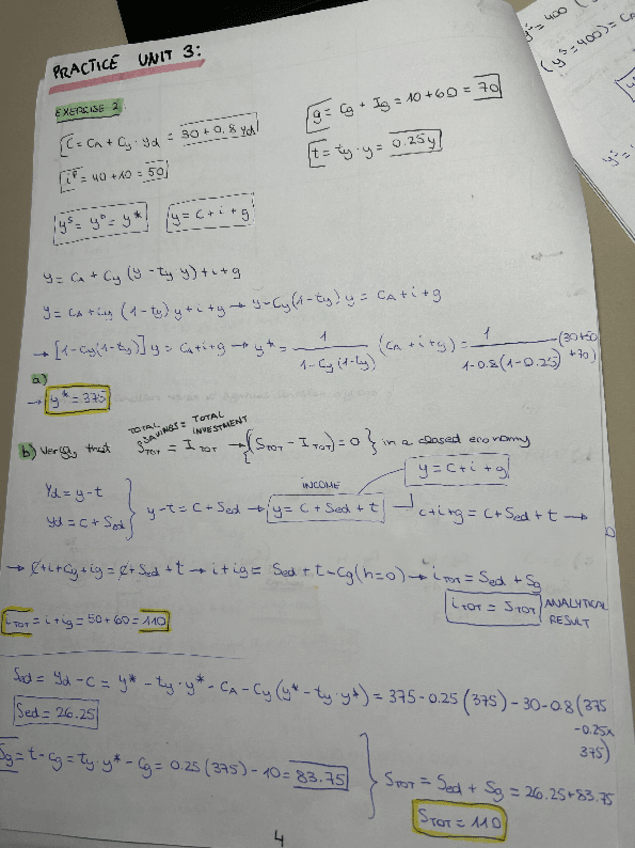 PRACTICE UNIT 3:
EXERCISE 2.
C = CA + Cy · Yd = 30 + 0,8 Yd
g = Cg + Ig = 10 + 60 = 70
iP = 40 + 10 = 50
t = ty · y = 0.25y
yS = yD = y*
y = c + i + g
y = CA + Cy (y - ty y) + i + g
y = CA + Cy (1 - ty) y + i + g → y - Cy (1 - ty) y = CA + i + g
→ [1 - Cy (1 - ty)] y = CA + i + g → y* = 1 / 1 - Cy (1 - ty) (CA + i + g) = 1 / 1 - 0.8 (1 - 0.25) (30 + 50 + 70)
a)
→ y* = 375
TOTAL SAVINGS = TOTAL INVESTMENT
b) Verify that STOT = ITOT → {STOT - ITOT) = 0} in a closed economy
Yd = y - t
yd = C + Sed
y - t = C + Sed → y = C + Sed + t
INCOME
y = C + i + g
c + i + g = C + Sed + t →
→ c + i + Cg + ig = c + Sed + t → i + ig = Sed + t - Cg (h = 0) → iTOT = Sed + Sg
iTOT = STOT ANALYTICAL RESULT
iTOT = i + ig = 50 + 60 = 110
Sed = Yd - C = y* - ty · y* - CA - Cy (y* - ty · y*) = 375 - 0.25 (375) - 30 - 0.8 (375 - 0.25x 375)
Sed = 26.25
Sg = t - Cg = ty · y* - Cg = 0.25 (375) - 10 = 83.75
STOT = Sed + Sg = 26.25 + 83.75
STOT = 110
4
yS = 400
(yS = 400) = CA